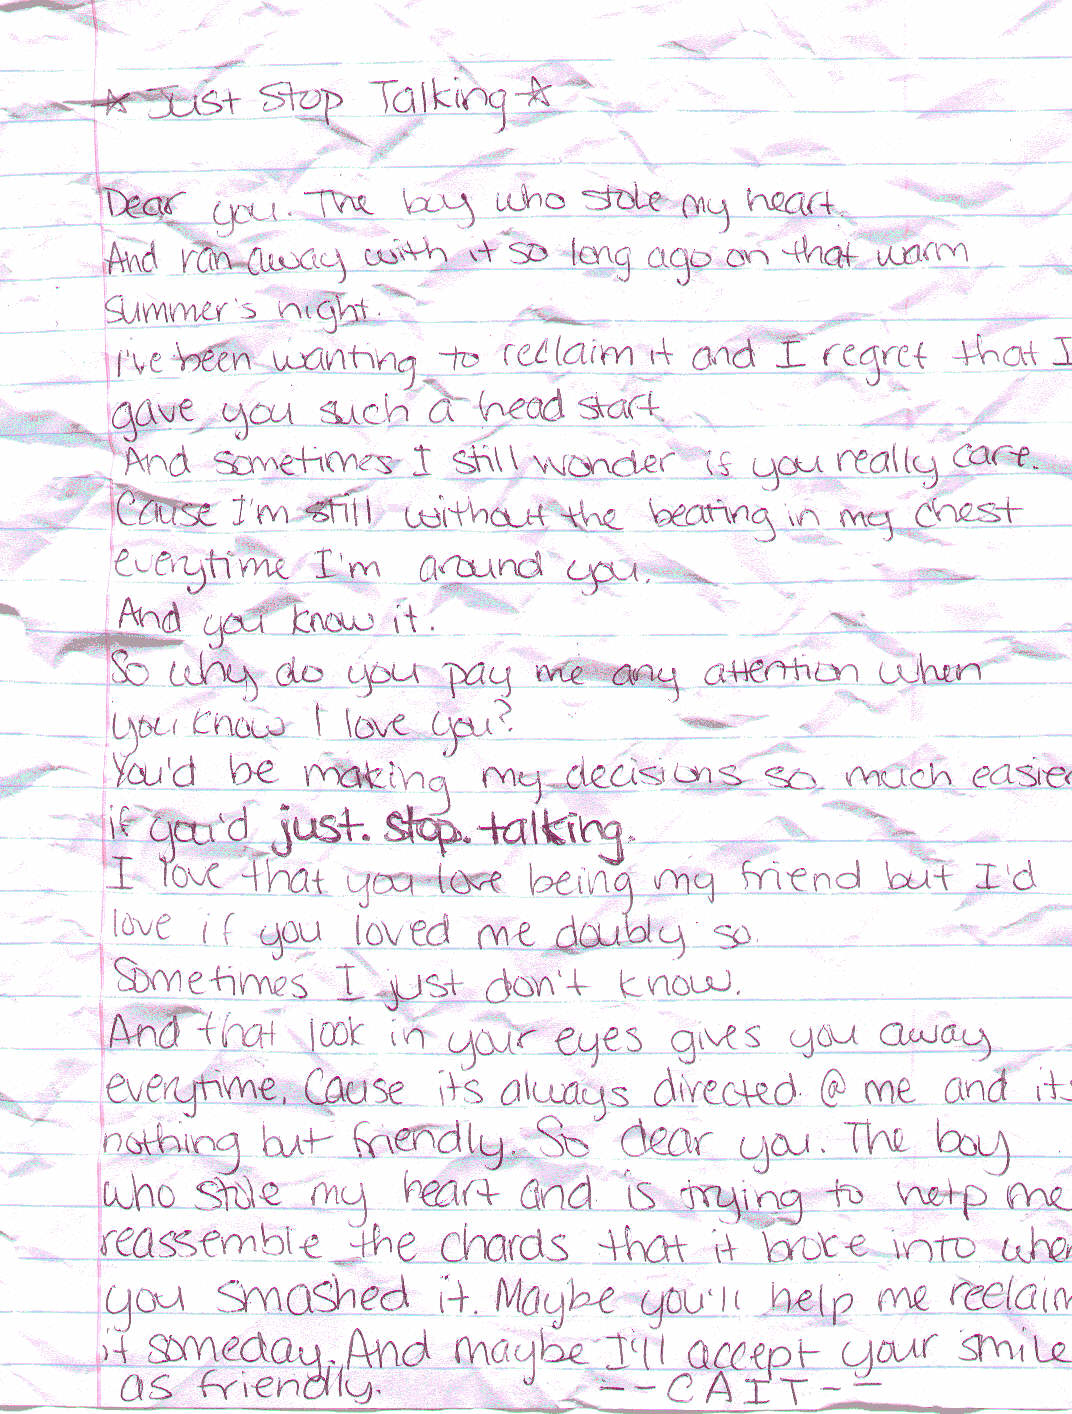 ☆ Just Stop Talking ☆
Dear you. The boy who stole my heart.
And ran away with it so long ago on that warm
summer's night.
I've been wanting to reclaim it and I regret that I
gave you such a head start.
And sometimes I still wonder if you really care.
Cause I'm still without the beating in my chest
everytime I'm around you.
And you know it.
So why do you pay me any attention when
you know I love you?
You'd be making my decisions so much easier
if you'd just. stop. talking.
I love that you love being my friend but I'd
love if you loved me doubly so.
Sometimes I just don't know.
And that look in your eyes gives you away
everytime. Cause its always directed @ me and its
nothing but friendly. So dear you. The boy
who stole my heart and is trying to help me
reassemble the chards that it broke into when
you smashed it. Maybe you'll help me reclaim
it someday. And maybe I'll accept your smile
as friendly. --CAIT--